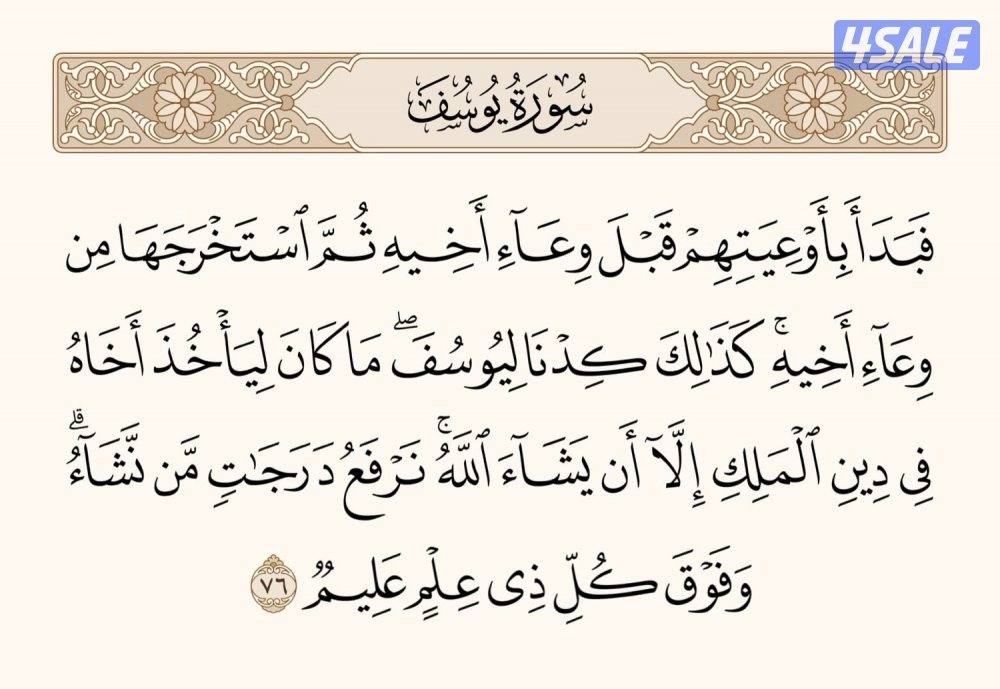 4SALE
سُورَةُ يُوسُفَ
فَبَدَأَ بِأَوْعِيَتِهِمْ قَبْلَ وِعَآءِ أَخِيهِ ثُمَّ ٱسْتَخْرَجَهَا مِن
وِعَآءِ أَخِيهِۚ كَذَٰلِكَ كِدْنَا لِيُوسُفَۖ مَا كَانَ لِيَأْخُذَ أَخَاهُ
فِى دِينِ ٱلْمَلِكِ إِلَّآ أَن يَشَآءَ ٱللَّهُۚ نَرْفَعُ دَرَجَٰتٍ مَّن نَّشَآءُۗ
وَفَوْقَ كُلِّ ذِى عِلْمٍ عَلِيمٌ ٧٦